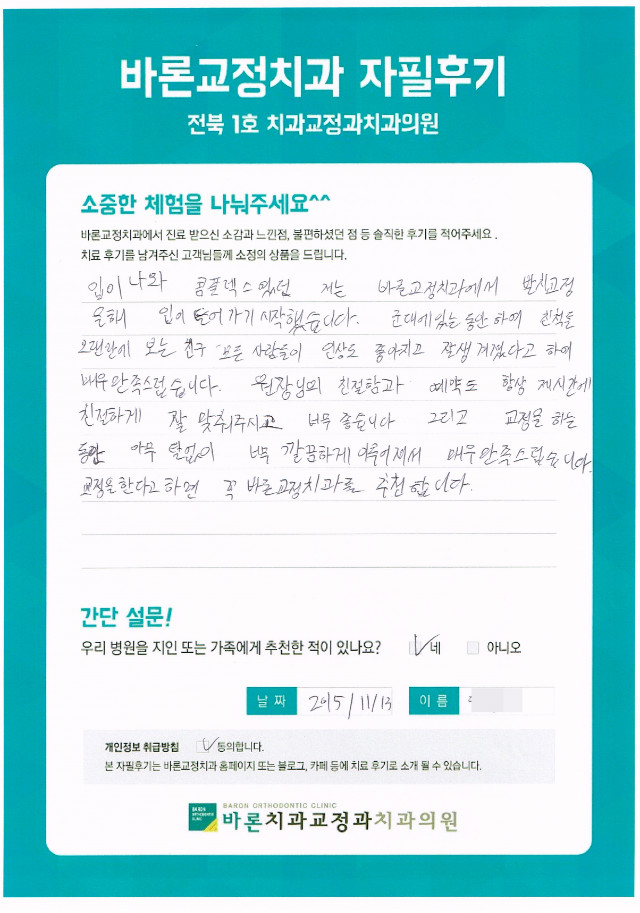 바론교정치과 자필후기
전북 1호 치과교정과치과의원
소중한 체험을 나눠주세요^^
바론교정치과에서 진료 받으신 소감과 느낀점, 불편하셨던 점 등 솔직한 후기를 적어주세요 .
치료 후기를 남겨주신 고객님들께 소정의 상품을 드립니다.
입이 나와 콤플렉스였던 저는 바론교정치과에서 발치교정
을해 입이 들어가기 시작했습니다. 군대에 있는 동안 하여 친척들
오랜만에 보는 친구 모든 사람들이 인상도 좋아지고 잘생겨졌다고 하여
매우만족스럽습니다. 원장님의 친절함과 예약도 항상 제시간에
친절하게 잘 맞춰주시고 너무 좋습니다 그리고 교정을 하는
동안 아무 탈없이 너무 깔끔하게 이루어져서 매우만족스럽습니다.
교정을한다고하면 꼭 바론교정치과를 추천합니다.
간단 설문!
우리 병원을 지인 또는 가족에게 추천한 적이 있나요? 네 아니오
날 짜 2015/11/13 이 름
개인정보 취급방침 동의합니다.
본 자필후기는 바론교정치과 홈페이지 또는 블로그, 카페 등에 치료 후기로 소개 될 수 있습니다.
BARON ORTHODONTIC CLINIC
바론치과교정과치과의원